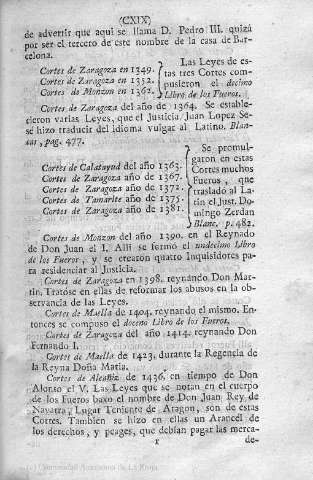 (CXIX)
de advertir que aqui se llama D. Pedro III. quizá
por ser el tercero de este nombre de la casa de Bar-
celona.
Cortes de Zaragoza en 1349.
Cortes de Zaragoza en 1352.
Cortes de Monzon en 1362.
Las Leyes de es-
tas tres Cortes com-
pusieron el decimo
Libro de los Fueros.
Cortes de Zaragoza del año de 1364. Se estable-
cieron varias Leyes, que el Justicia Juan Lopez Se-
sé hizo traducir del idioma vulgar al Latino. Blan-
cas, pag. 477.
Cortes de Calatayud del año 1363.
Cortes de Zaragoza año de 1367.
Cortes de Zaragoza año de 1372.
Cortes de Tamarite año de 1375.
Cortes de Zaragoza año de 1381.
Se promul-
garon en estas
Cortes muchos
Fueros, que
traslado al La-
tin el Just. Do-
mingo Zerdan
Blanc. p. 482.
Cortes de Monzon del año 1390. en el Reynado
de Don Juan el I. Alli se formó el undecimo Libro
de los Fueros, y se crearon quatro Inquisidores pa-
ra residenciar al Justicia.
Cortes de Zaragoza en 1398. reynando Don Mar-
tin. Tratóse en ellas de reformar los abusos en la ob-
servancia de las Leyes.
Cortes de Maella de 1404. reynando el mismo. En-
tonces se compuso el doceno Libro de los Fueros.
Cortes de Zaragoza del año 1414. reynando Don
Fernando I.
Cortes de Maella de 1423. durante la Regencia de
la Reyna Doña Maria.
Cortes de Alcañiz de 1436. en tiempo de Don
Alonso el V. Las Leyes que se notan en el cuerpo
de los Fueros baxo el nombre de Don Juan Rey de
Navarra, Lugar Teniente de Aragon, son de estas
Cortes. Tambien se hizo en ellas un Arancél de
los derechos, y peages, que debian pagar las merca-
de-
(c) Universidad Autonoma de La Rioja